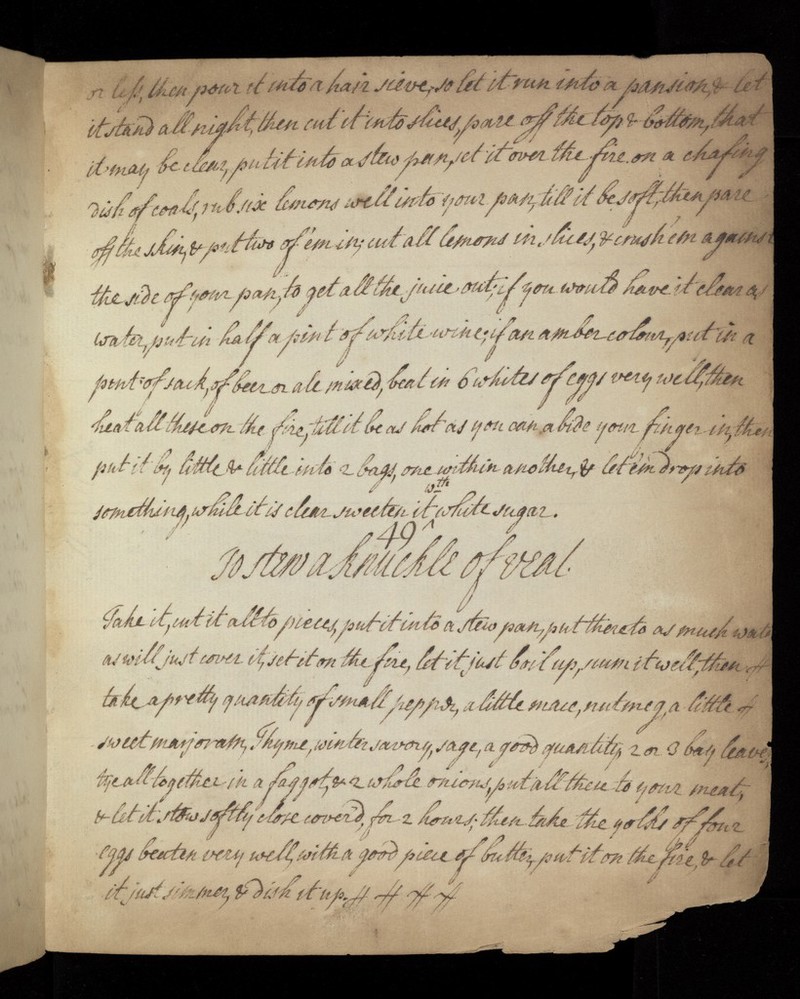 or less, then pour it into a hair sieve, so let it run into a pansion, & let
it stand all night, then cut it into slices, pare off the top & bottom, that
it may be clear, put it into a stew pan, set it over the fire on a chafing
dish of coals, rub six lemons well into your pan, till it be soft, then pare
off the skin, & put two of 'em in; cut all lemons in slices, & crush 'em against
the side of your pan, to get all the juice out; if you would have it clear as
water, put in half a pint of white wine; if an amber colour, put in a
pint of sack, of beer or ale mixed, beat in 6 whites of eggs very well, then
heat all these on the fire, till it be as hot as you can abide your finger in, then
put it by little & little into 2 bags, one within another, & let 'em drop into
something, while it is clear sweeten it wth white sugar.
49
To stew a knuckle of veal.
Take it, cut it all to pieces, put it into a stew pan, put thereto as much wate
as will just cover it, set it on the fire, let it just boil up, scum it well, then
take a pretty quantity of small pepper, a little mace, nutmeg, a little
sweet marjoram, Thyme, winter savory, sage, a good quantity, 2 or 3 bay leaves,
tye all together in a faggot, & 2 whole onions, put all these to your meat,
& let it stew softly close cover'd, for 2 hours; then take the yolks of four
eggs beaten very well, with a good piece of butter, put it on the fire, & let
it just simmer, & dish it up.